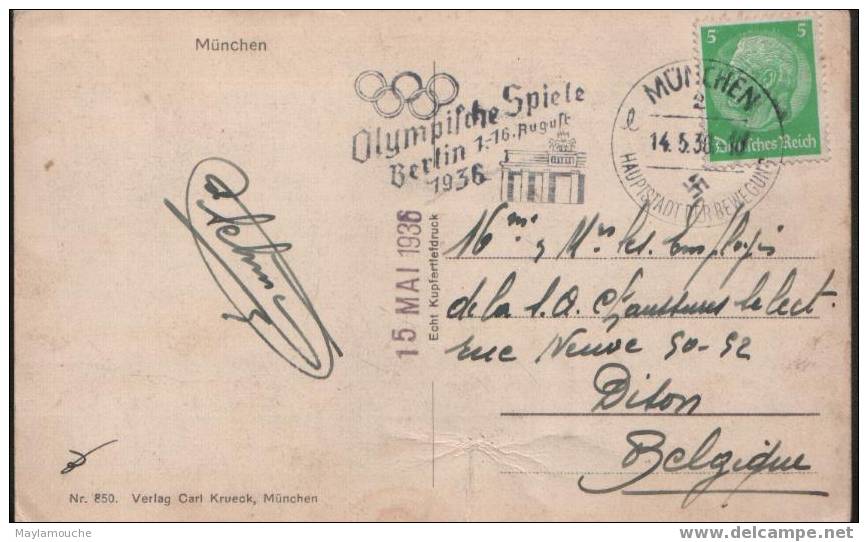 München
Olympische Spiele
Berlin 1.-16. August
1936
MÜNCHEN
2
e
14. 5. 36
HAUPTSTADT DER BEWEGUNG
5 5
Deutsches Reich
15 MAI 1936
Echt Kupfertiefdruck
de la S.A. Chaussures Select.
Rue Neuve 50-52
Belgique
Nr. 850. Verlag Carl Krueck, München
Maylamouche
www.delcampe.net